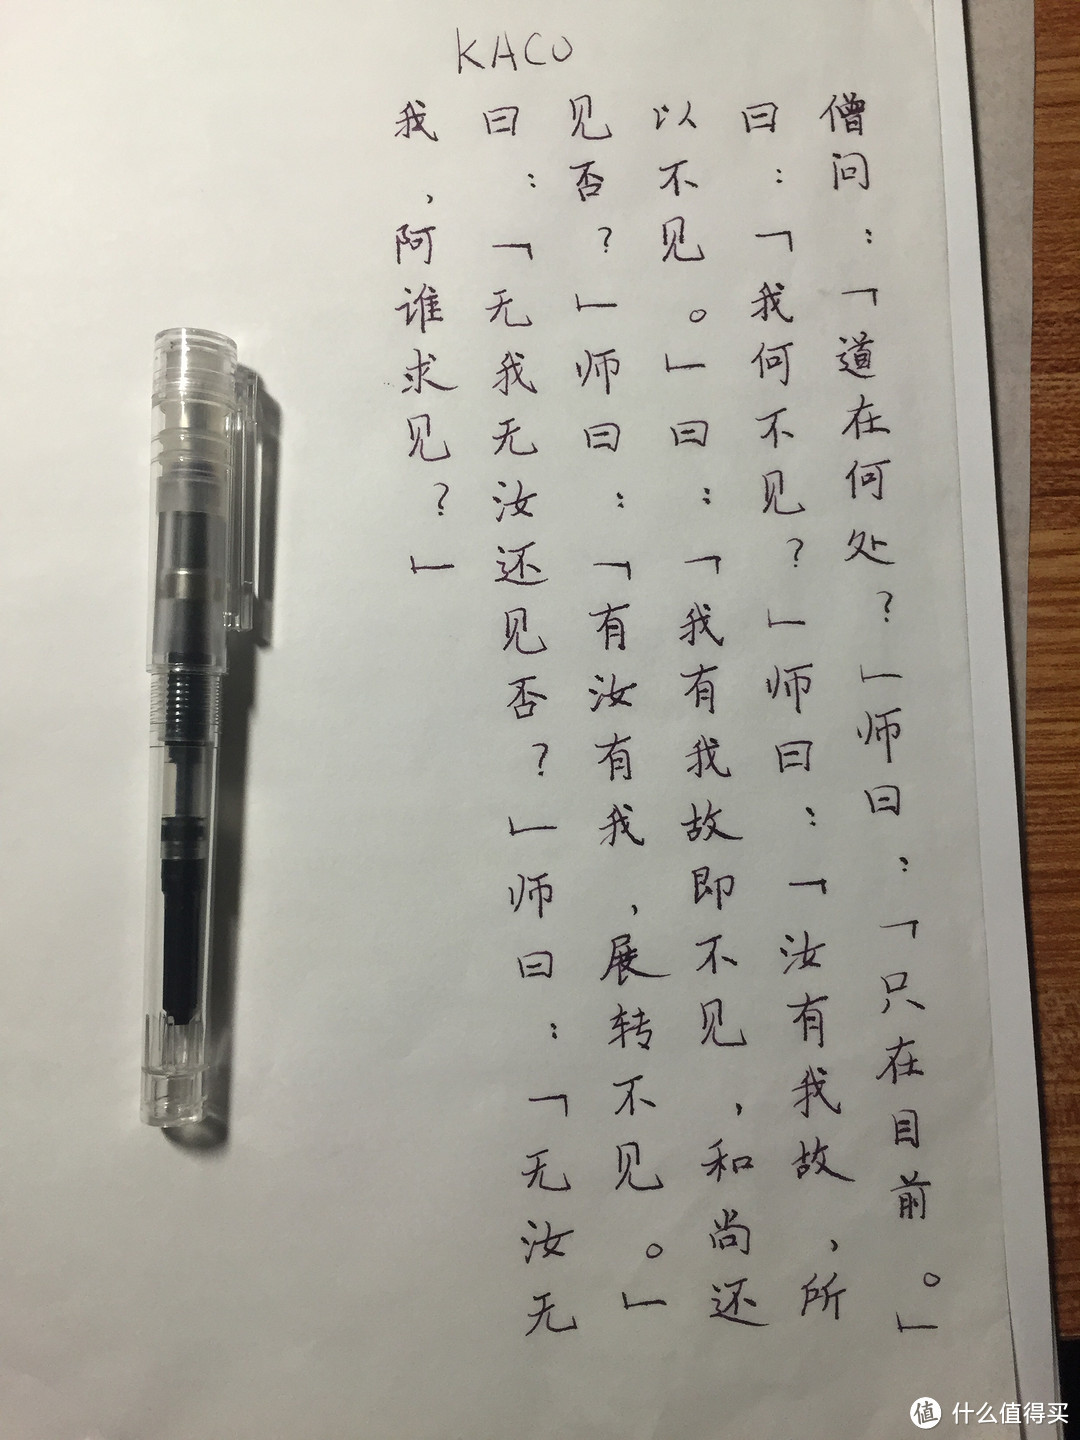 KACO
僧问：「道在何处？」师曰：「只在目前。」
曰：「我何不见？」师曰：「汝有我故，所
以不见。」曰：「我有我故即不见，和尚还
见否？」师曰：「有汝有我，展转不见。」
曰：「无我无汝还见否？」师曰：「无汝无
我，阿谁求见？」
值 什么值得买